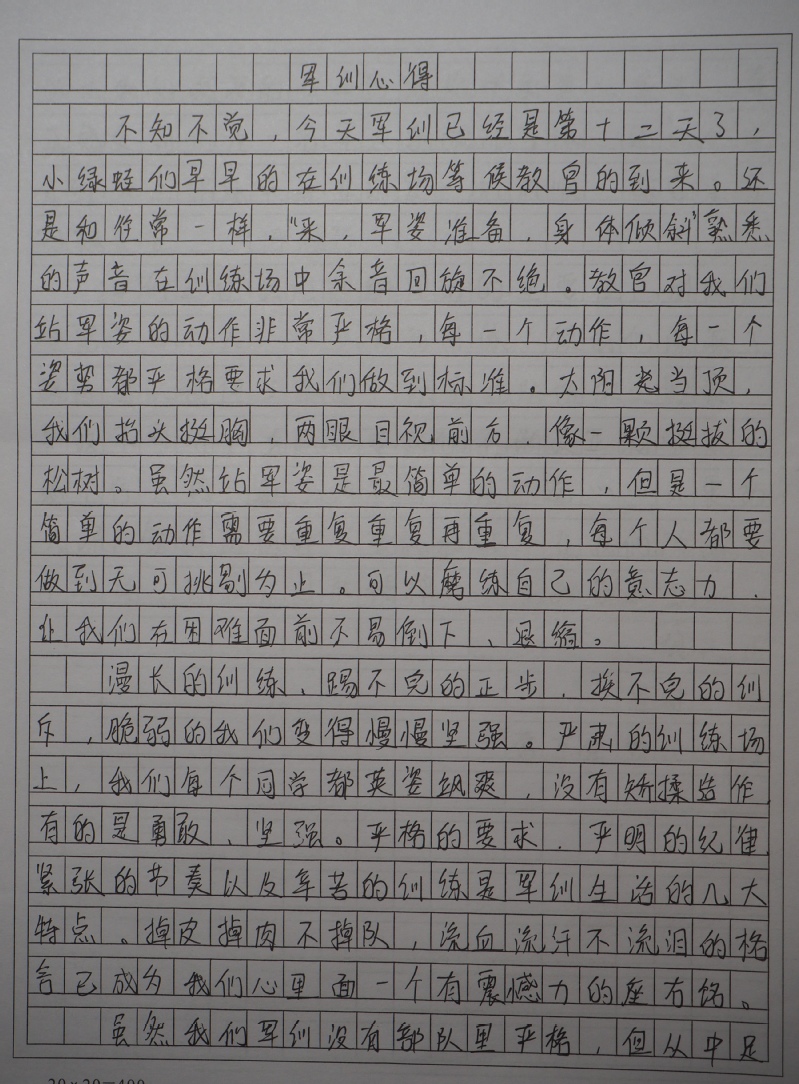 军训心得
不知不觉，今天军训已经是第十二天了，
小绿蛙们早早的在训练场等候教官的到来。还
是和往常一样，“来，军姿准备，身体倾斜”熟悉
的声音在训练场中余音回旋不绝。教官对我们
站军姿的动作非常严格，每一个动作，每一个
姿势都严格要求我们做到标准。太阳当顶，
我们抬头挺胸，两眼目视前方，像一颗挺拔的
松树。虽然站军姿是最简单的动作，但是一个
简单的动作需要重复重复再重复，每个人都要
做到无可挑剔为止。可以磨练自己的意志力，
让我们在困难面前不易倒下、退缩。
漫长的训练、踢不完的正步，挨不完的训
斥，脆弱的我们变得慢慢坚强。严肃的训练场
上，我们每个同学都英姿飒爽，没有矫揉造作
有的是勇敢、坚强。严格的要求、严明的纪律
紧张的节奏以及辛苦的训练是军训生活的几大
特点。掉皮掉肉不掉队，流血流汗不流泪的格
言已成为我们心里面一个有震撼力的座右铭。
虽然我们军训没有部队里严格，但从中足
20×20=400